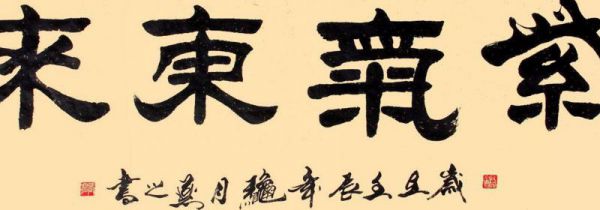 紫氣東來
歲在壬辰年龝月燕之書